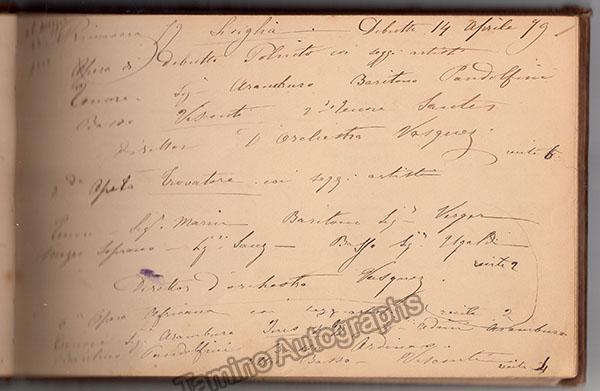 Primavera 79 Siviglia. Debutto 14 Aprile 79
Opera di debutto Poliuto coi seggi artisti
Tenore Sigr Aramburo Baritono Pandolfini
Basso Visconti 2º Tenore Santes
Direttor D'Orchestra Vasquez.
recite 6.
2da Opera Trovatore coi seggi artisti
Tenore Sigr Marin Baritono Sigr Verger
Mezzo Soprano Sigra Sanz Basso Sigr Ugaldi
recite 2
Direttor d'orchestra Vasquez.
Opera Africana coi recite 2
Tenore Sigr Aramburo Ines Aramburo
Baritono Pandolfini
Basso Visconti recite 4
Tamino Autographs